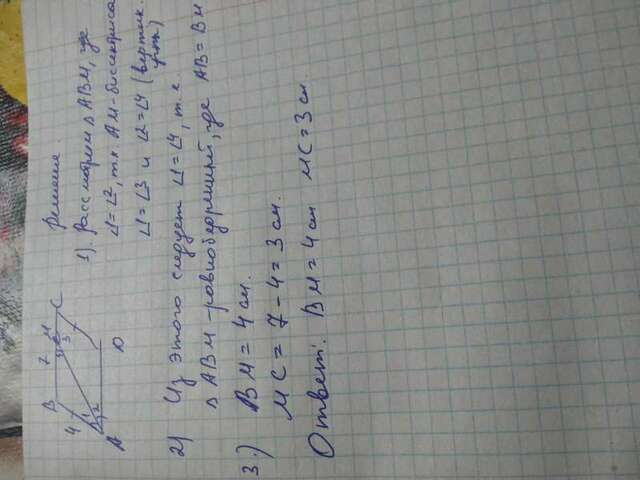 Решение.
1). Рассмотрим △ ABM, где
∠1=∠2, т.к. AM-биссектриса
∠1=∠3 и ∠2=∠4 (вертик.
B 7 M C
4 3 4
1 2
A D
2) Из этого следует ∠1=∠4, т.к.
△ ABM-равнобедренный, где AB=BM
3.) BM = 4 см.
MC = 7-4=3 см.
Ответ: BM=4см MC=3см.